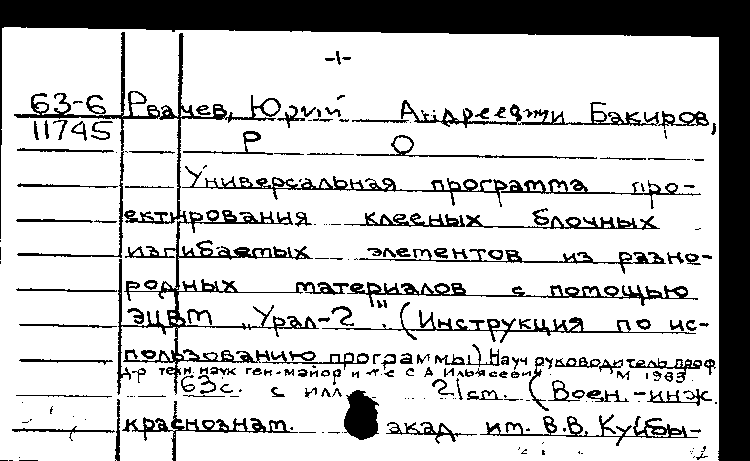 -1-
63-6 Рвачев, Юрий Андреевич и Бакиров,
11745 Р О
Универсальная программа про-
ектирования клееных блочных
изгибаемых элементов из разно-
родных материалов с помощью
ЭЦВМ "Урал-2". (Инструкция по ис-
пользованию программы) Науч руководитель проф
д-р техн наук ген-майор С А Ильясевич М 1963
63с. с илл 21см. (Воен.-инж.
краснознам. акад им. В.В. Куйбы-